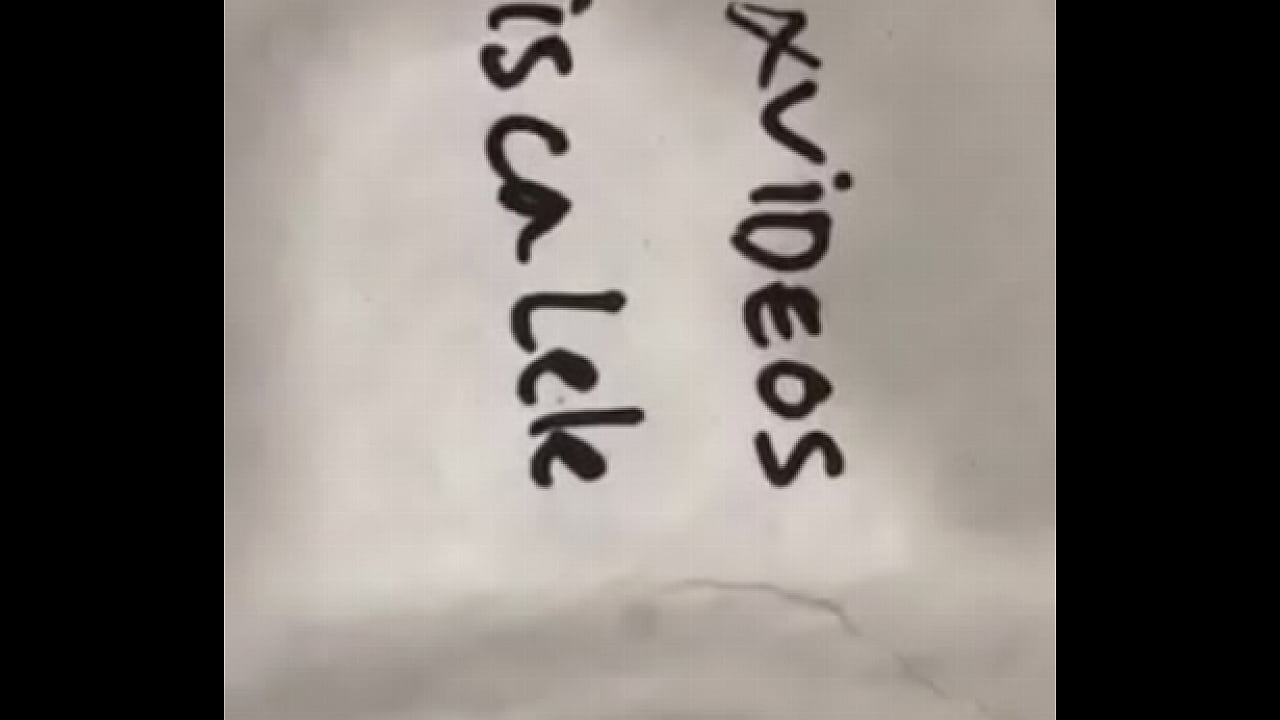 XViDEOS
isca lek